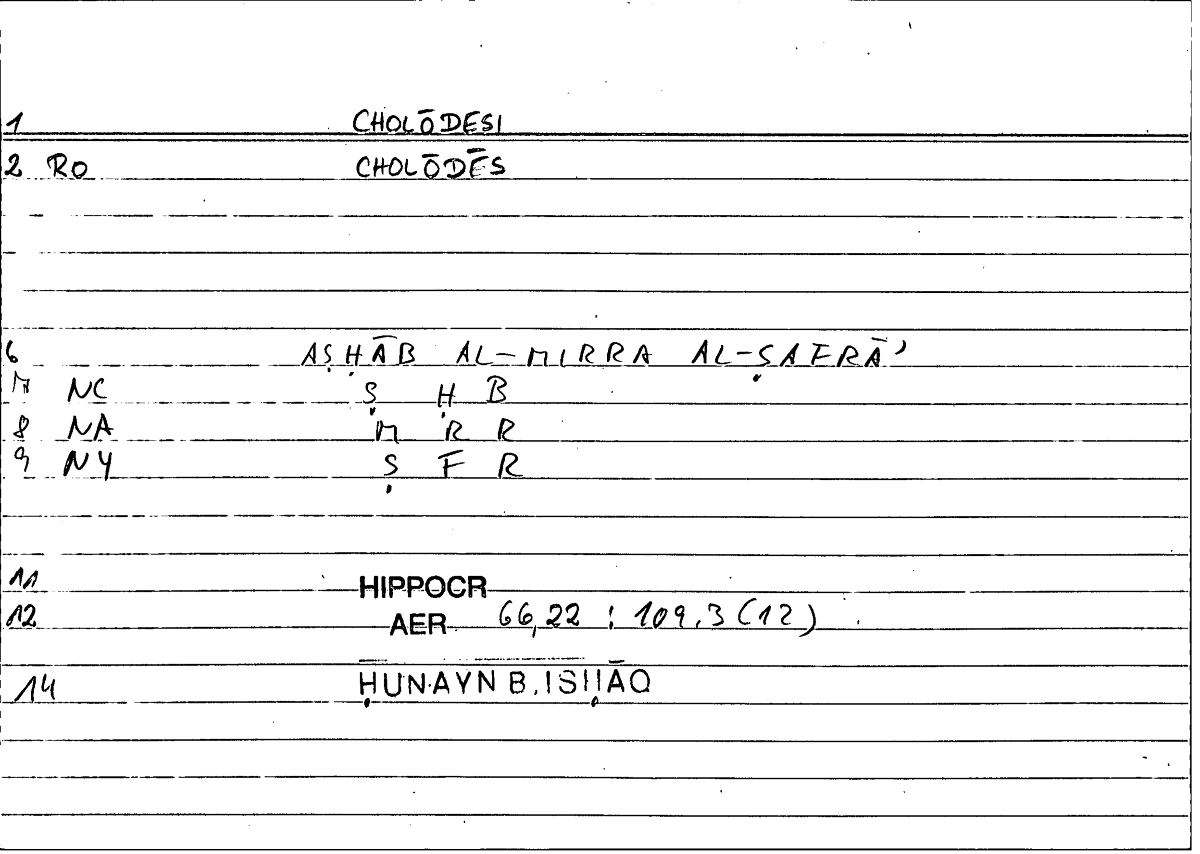 1 CHOLŌDESI
2 RO CHOLŌDĒS
6 AṢḤĀB AL-MIRRA AL-ṢAFRĀʾ
7 NC Ṣ Ḥ B
8 NA M R R
9 NY Ṣ F R
11 HIPPOCR
12 AER 66,22 : 109,3 (12)
14 ḤUNAYN B. ISḤĀQ